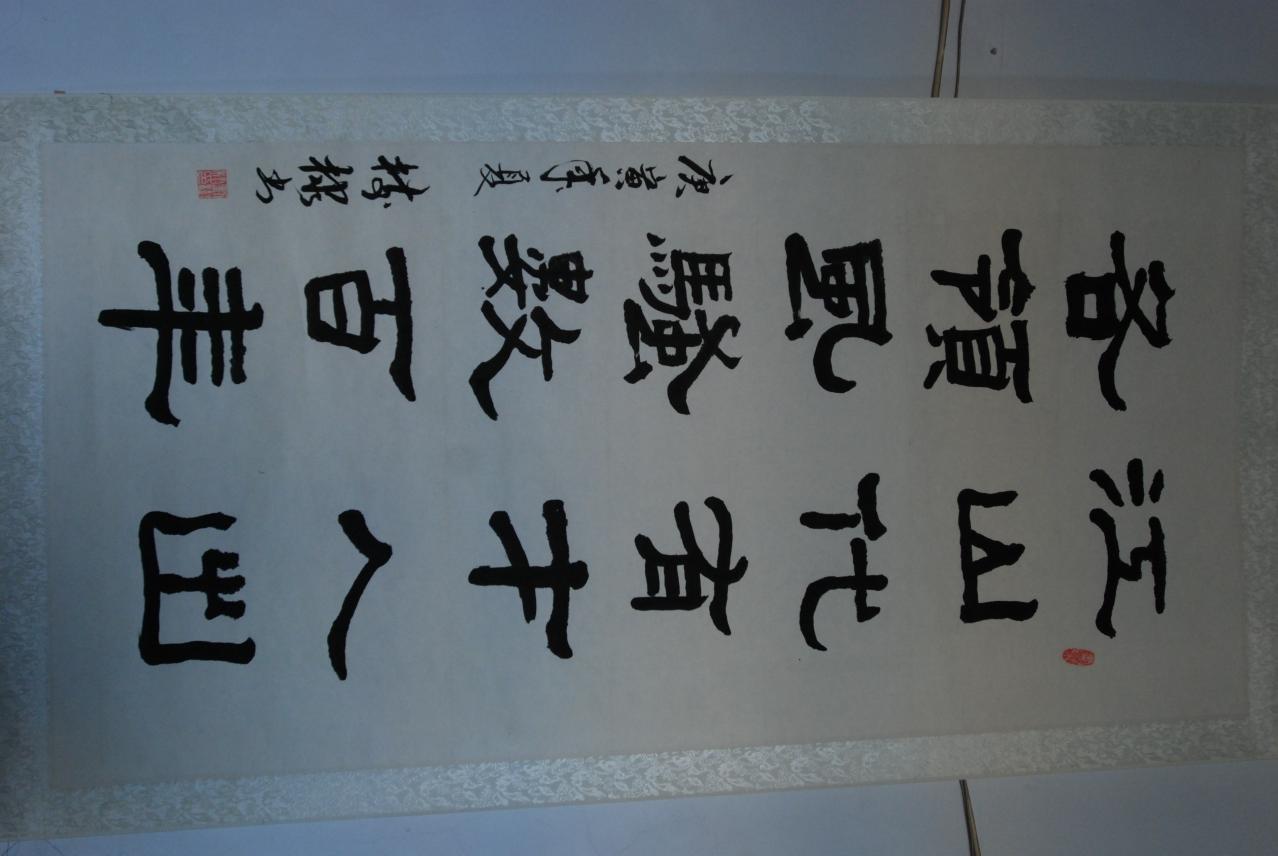 江山代有才人出
各領風騷數百年
庚寅年夏
书